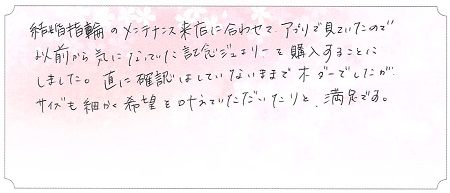 結婚指輪のメンテナンス来店に合わせて、アプリで見ていたので
以前から気になっていた記念ジュエリーを購入することに
しました。直に確認はしていないままでオーダーでしたが
サイズも細かく希望を叶えていただいたりと、満足です。